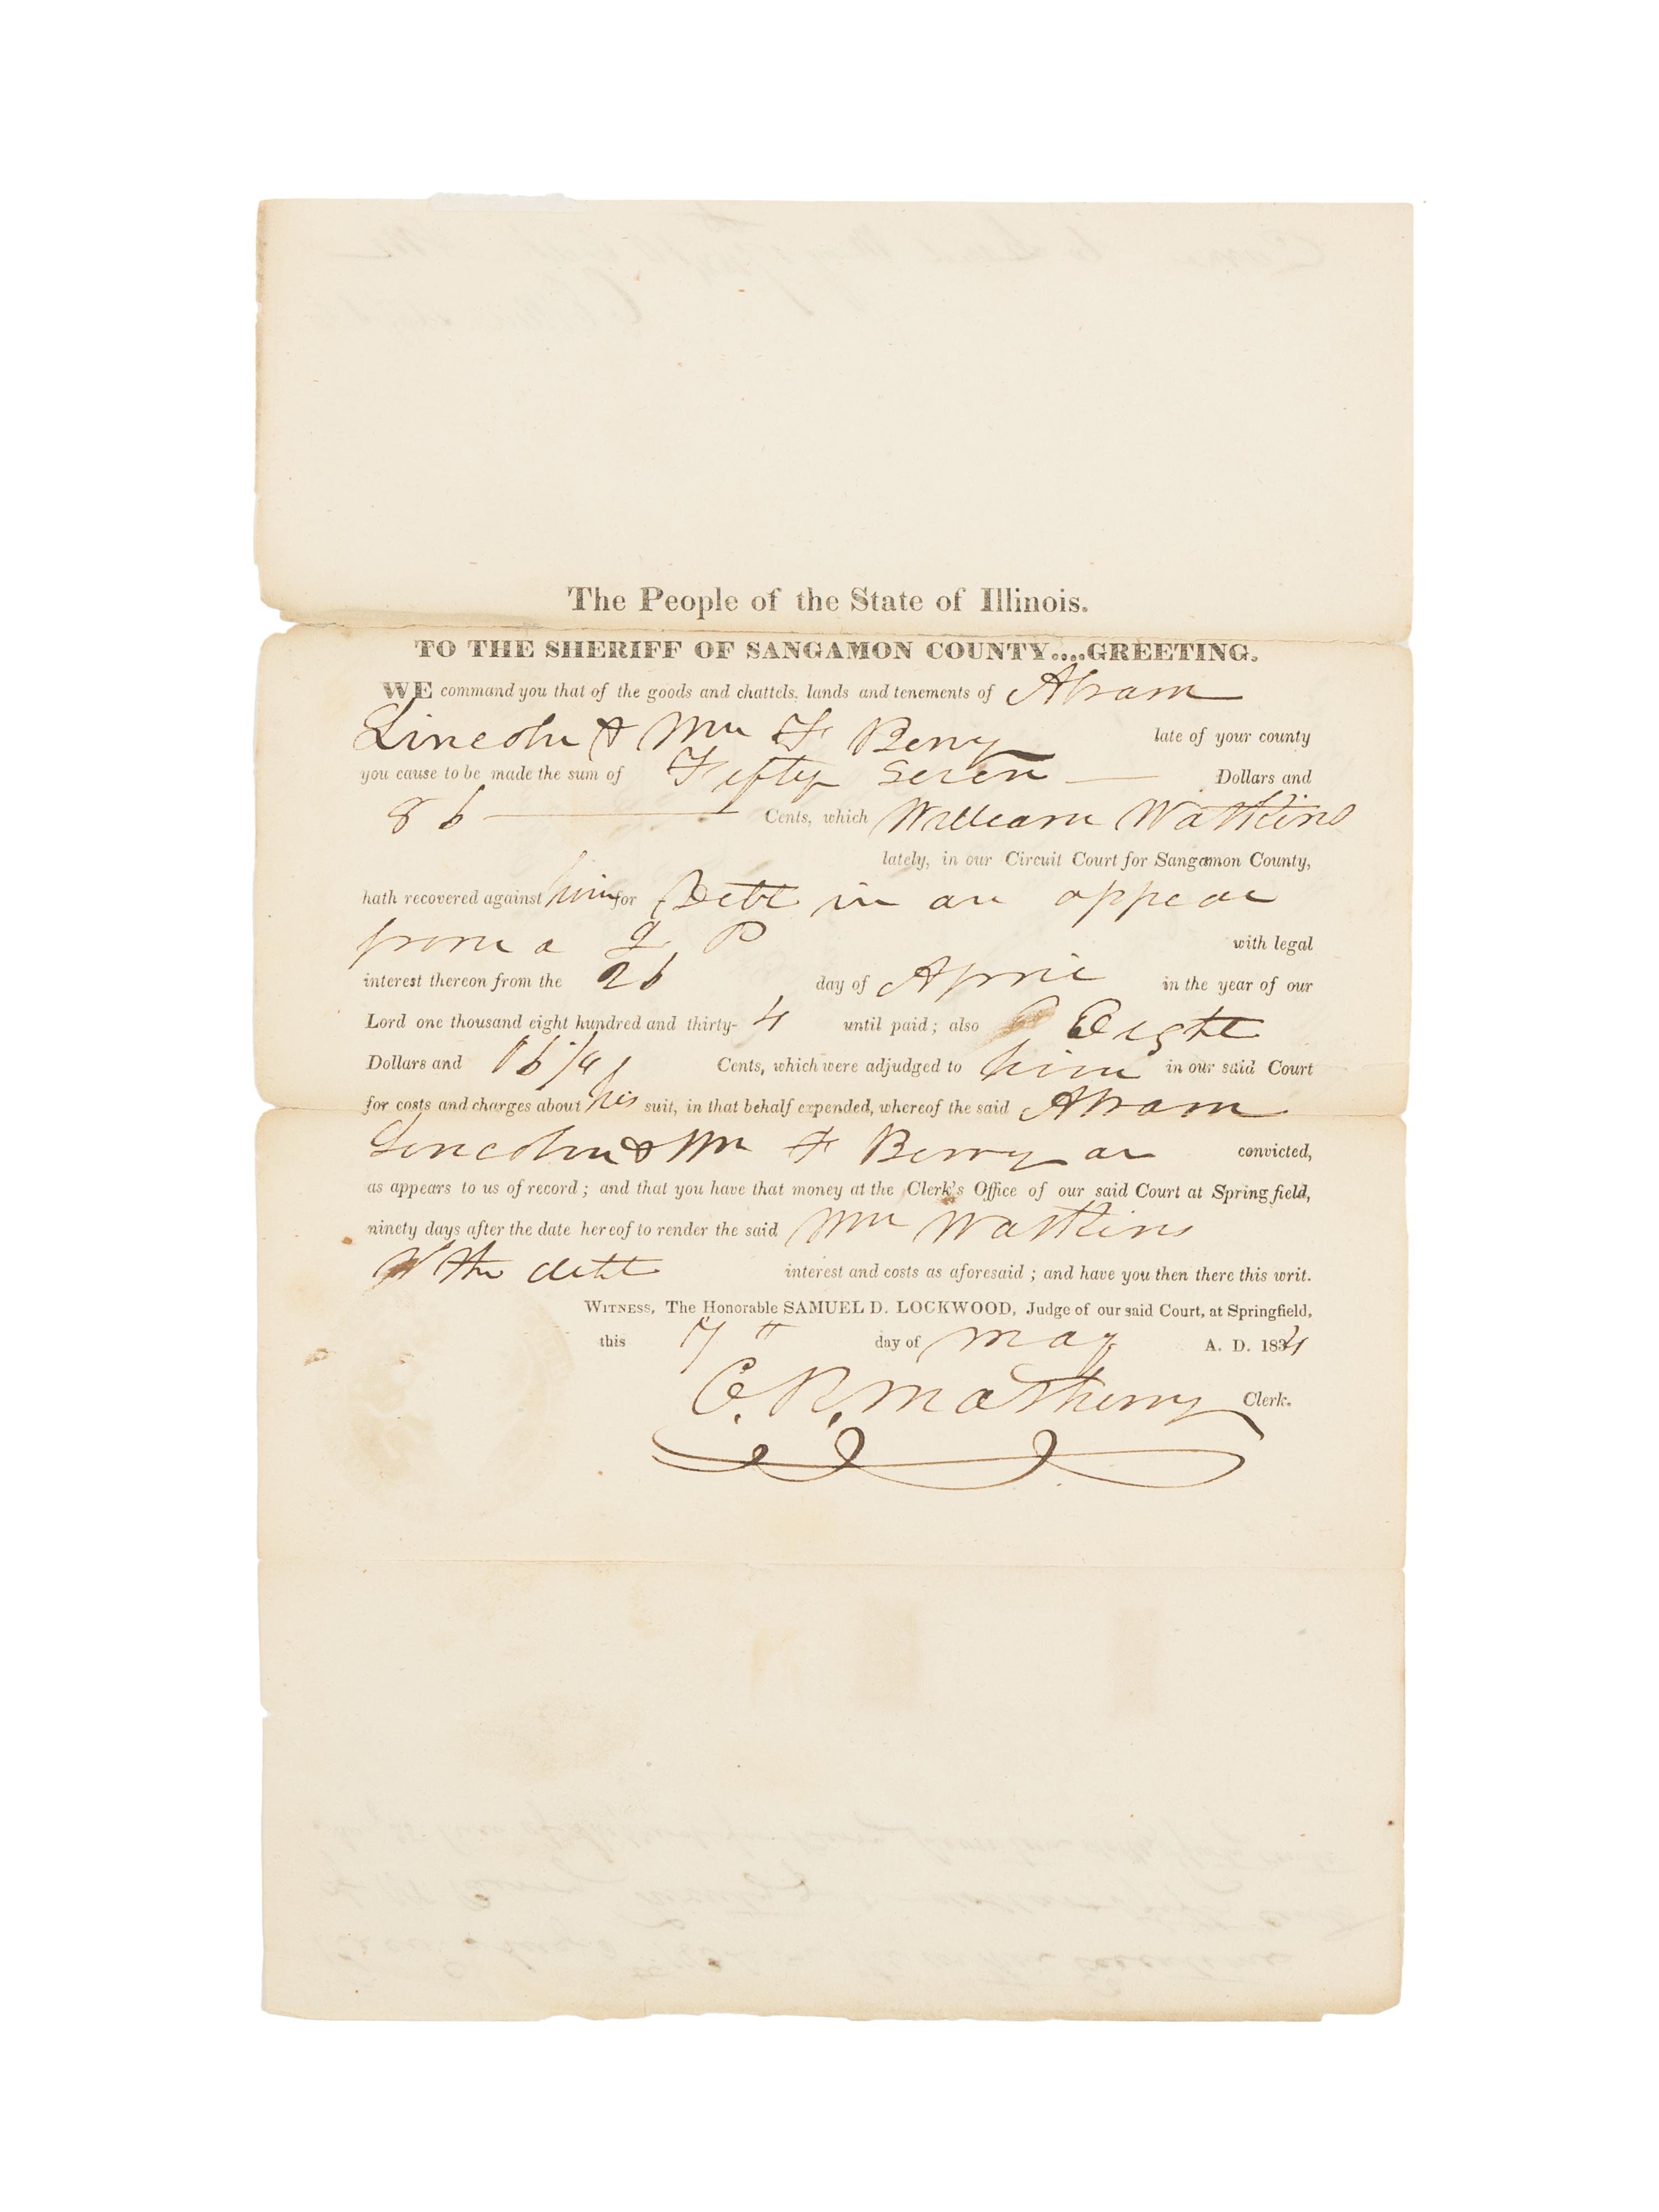 The People of the State of Illinois.
TO THE SHERIFF OF SANGAMON COUNTY....GREETING.
WE command you that of the goods and chattels, lands and tenements of Abram
Lincoln & Wm F Berry late of your county
you cause to be made the sum of Fifty Seven Dollars and
86 Cents, which William Watkins
lately, in our Circuit Court for Sangamon County,
hath recovered against him for Debt in an appeal
from a J P with legal
interest thereon from the 26 day of April in the year of our
Lord one thousand eight hundred and thirty-4 until paid; also Eight
Dollars and Cents, which were adjudged to him in our said Court
for costs and charges about his suit, in that behalf expended, whereof the said Abram
Lincoln & Wm F Berry ar convicted,
as appears to us of record; and that you have that money at the Clerk's Office of our said Court at Springfield,
ninety days after the date hereof to render the said Wm Watkins
the debt interest and costs as aforesaid; and have you then there this writ.
WITNESS, The Honorable SAMUEL D. LOCKWOOD, Judge of our said Court, at Springfield,
this 7th day of May A. D. 1834
C. R. Matheny Clerk.